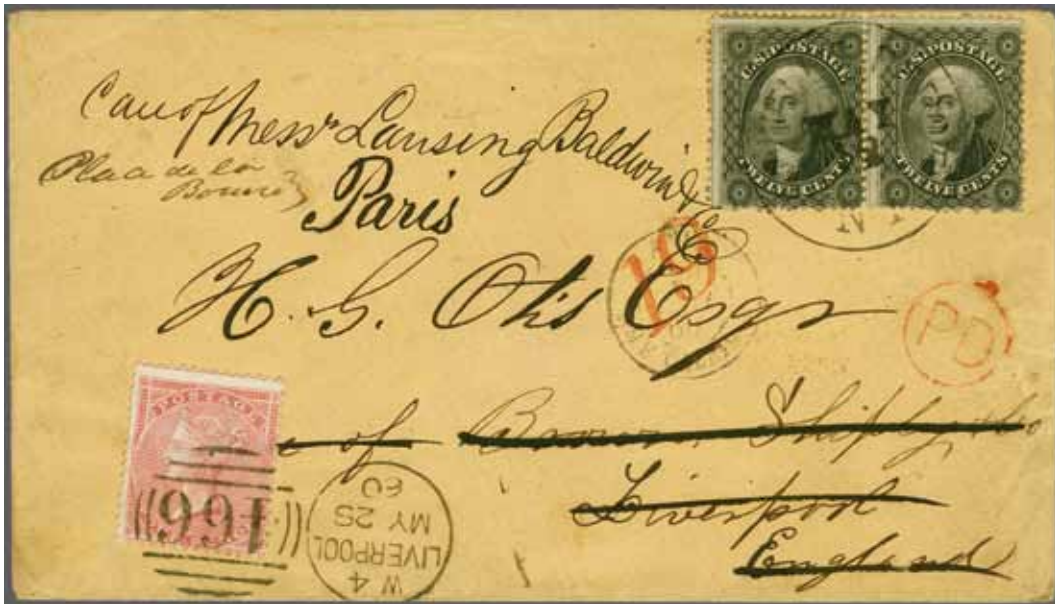 U.S. POSTAGE
TWELVE CENTS
U.S. POSTAGE
TWELVE CENTS
Care of Messrs Lansing Baldwin & Co
Place de la
Bourse
Paris
19
H. G. Otis Esqr
PD
POSTAGE
of Brown Shipley & Co
Liverpool
England
466
LIVERPOOL
MY 25
60
W 4